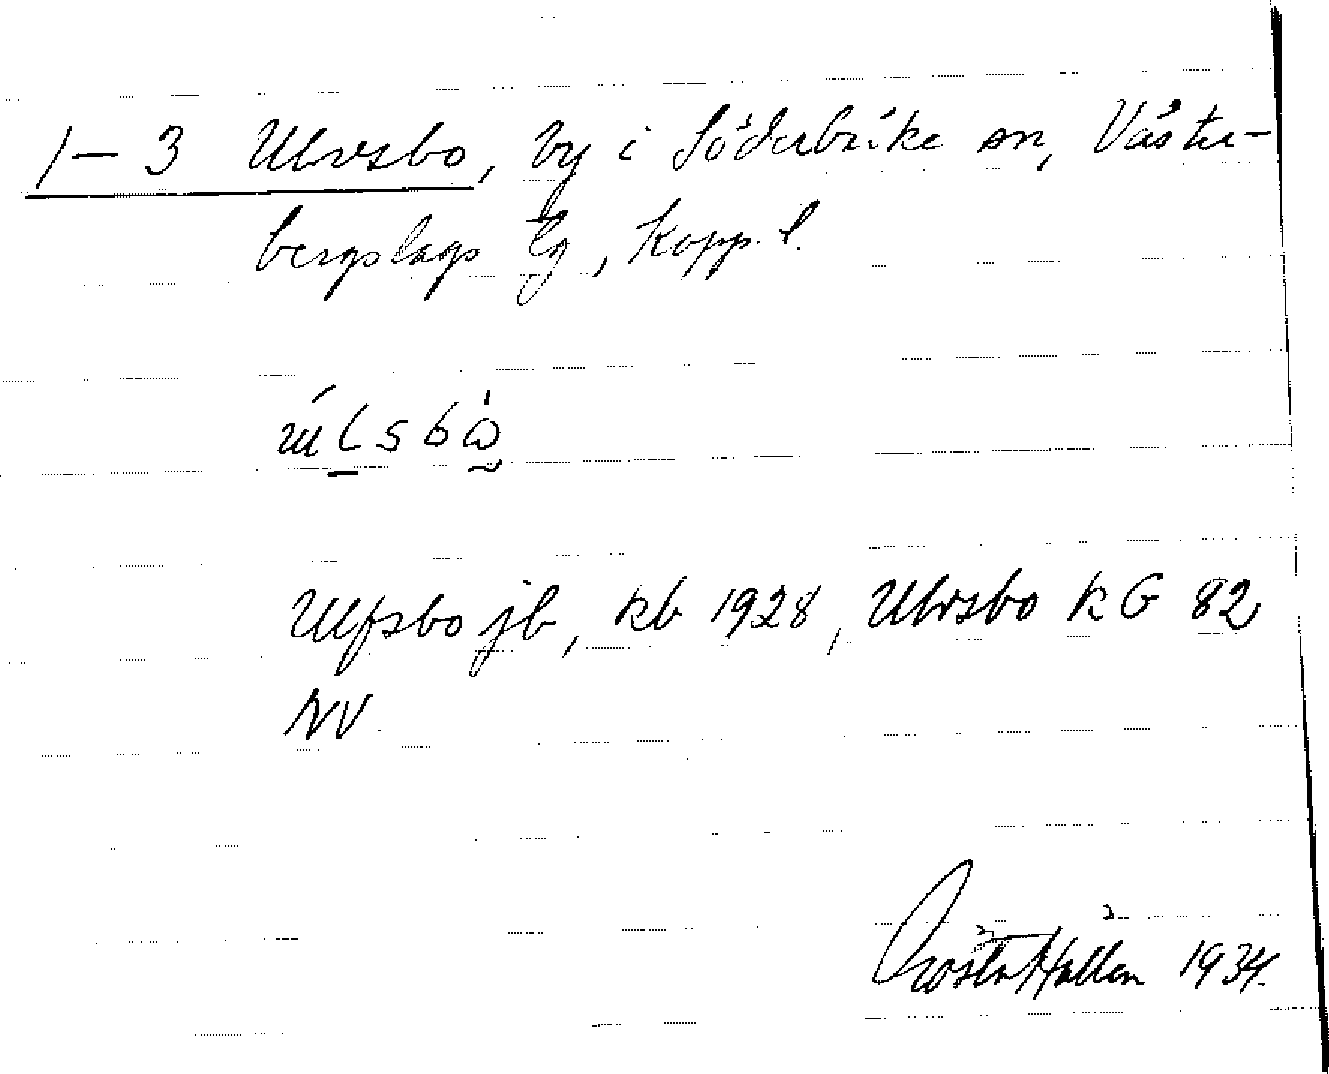 1-3 Ulvsbo, by i Söderbärke sn, Väster-
bergslags tg, Kopp. l.
Ulfsbo jb, kb 1928, Ulvsbo kG 82
NV
Gösta Hallén 1934.